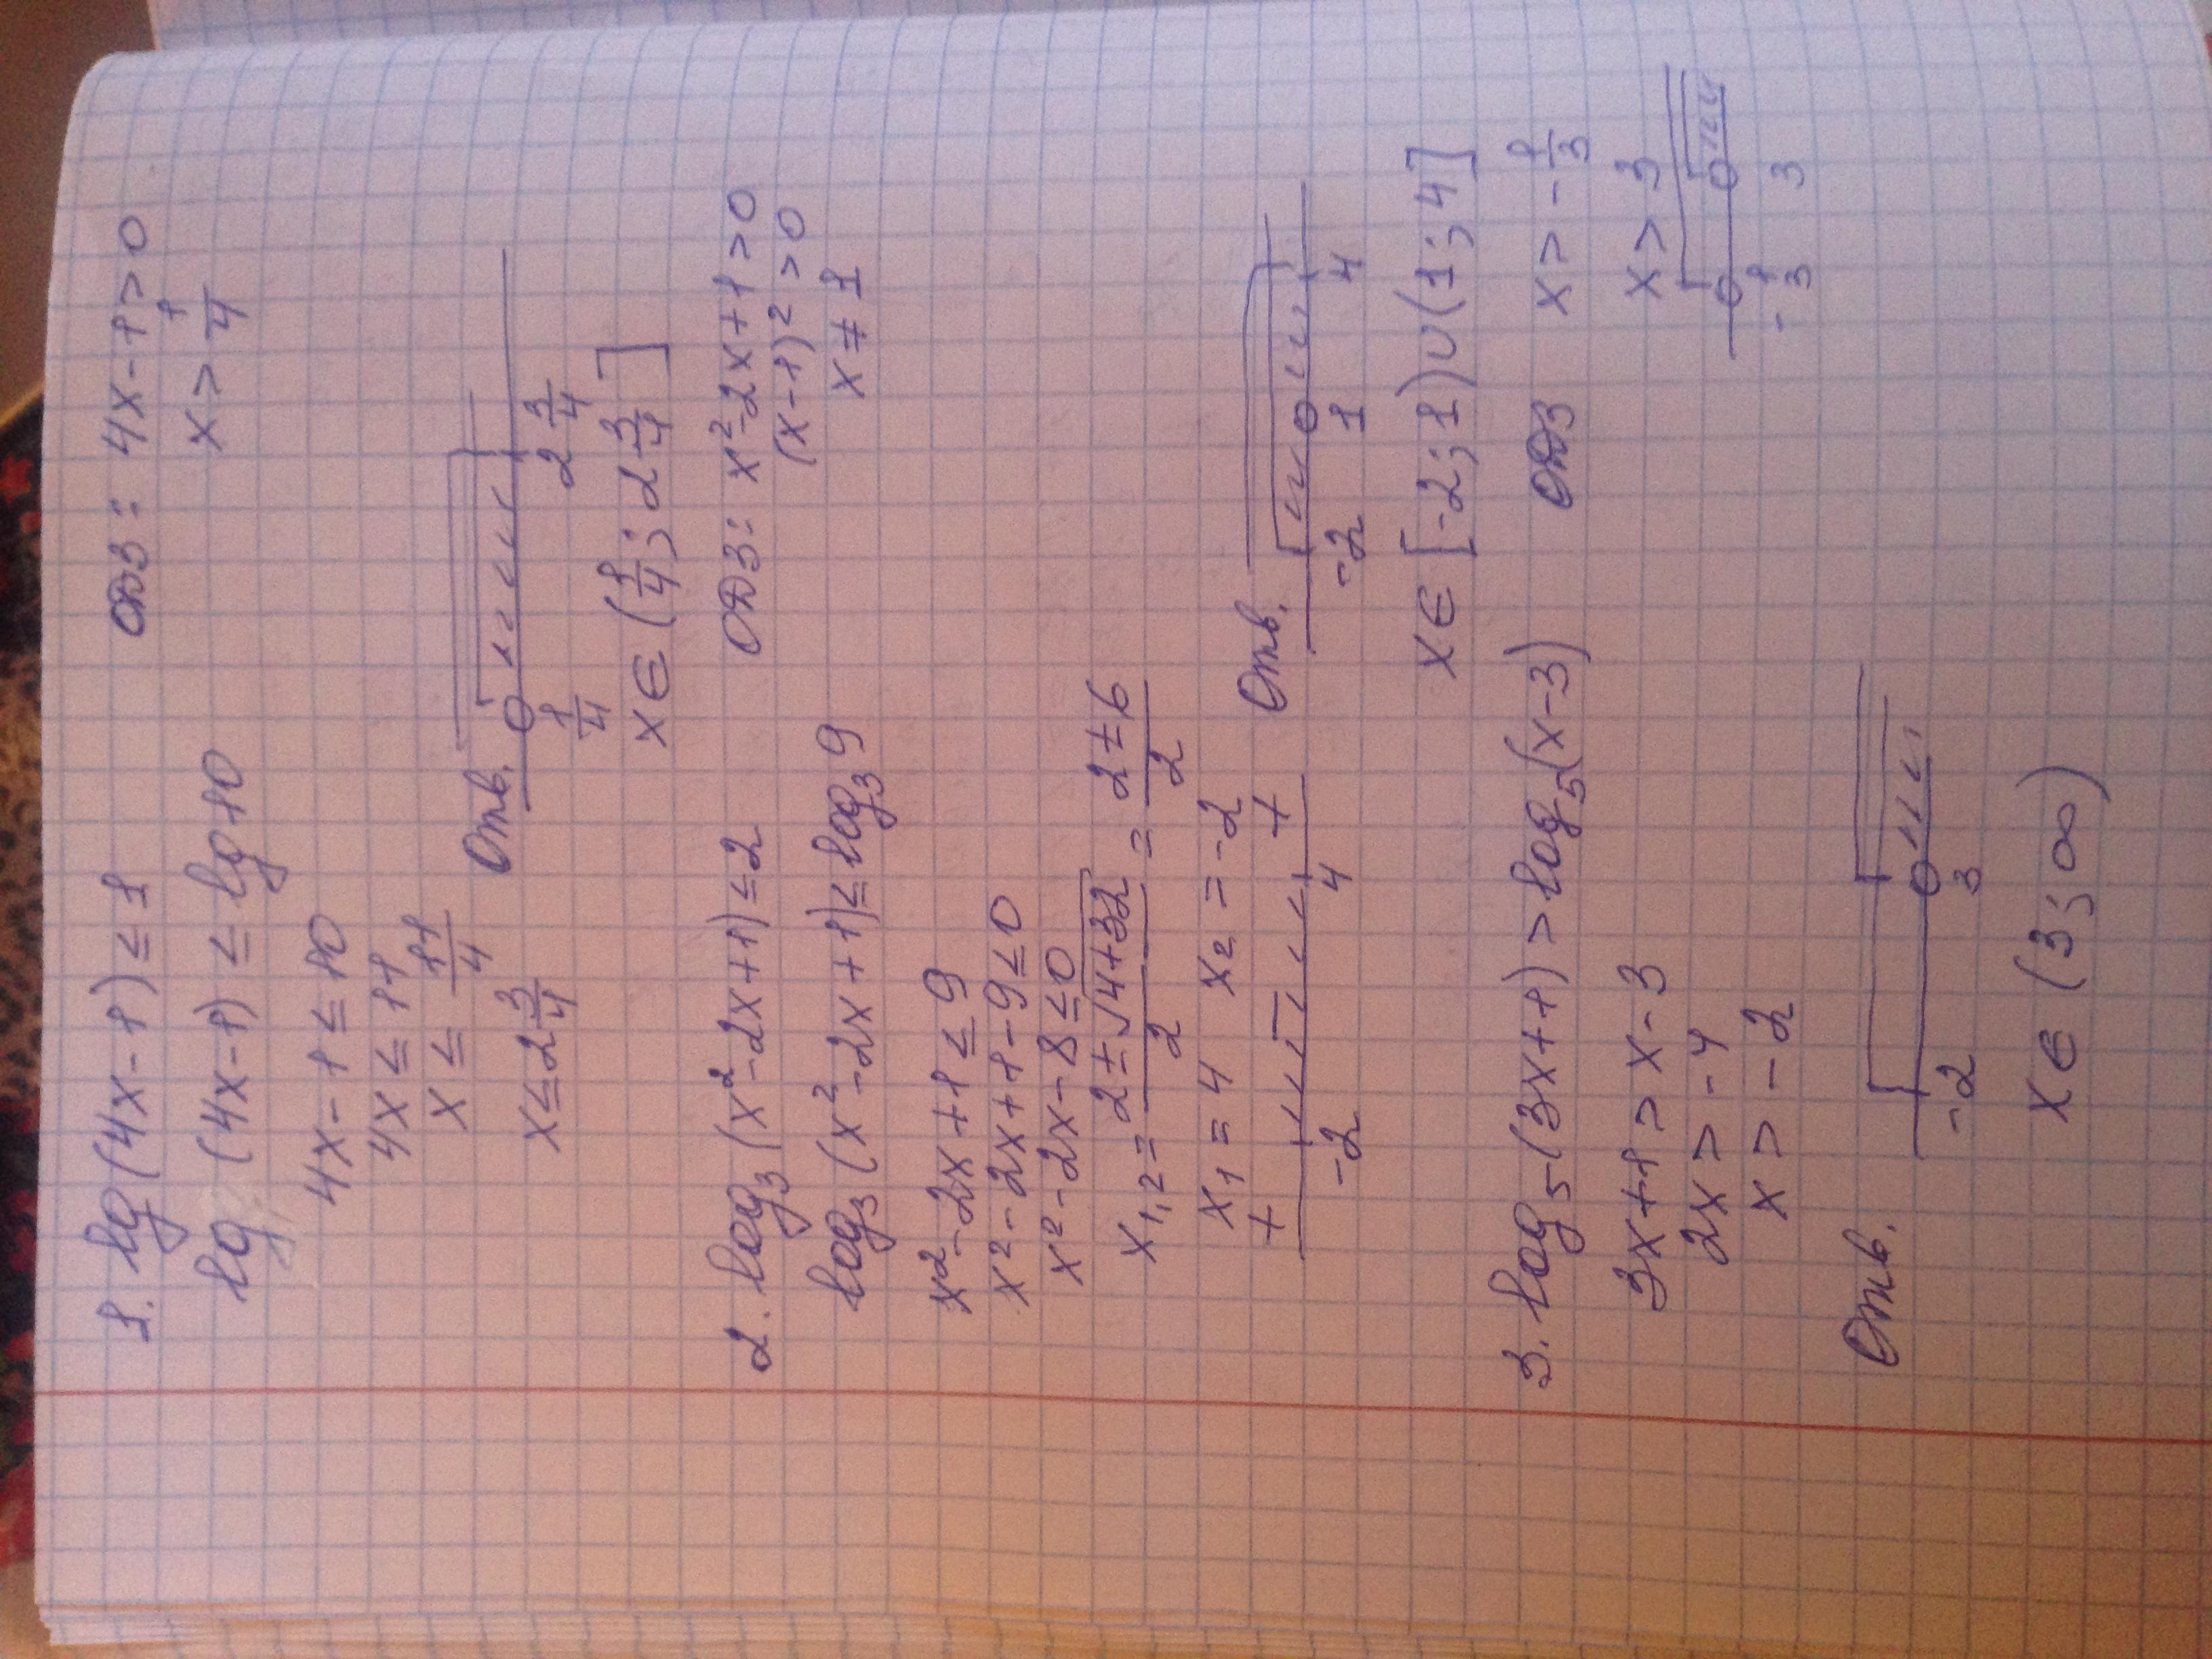 1. lg(4x-1)≤1 ОДЗ: 4x-1>0
lg (4x-1) ≤ lg10 x > 1/4
4x-1 ≤ 10
4x ≤ 11
x ≤ 11/4
x ≤ 2 3/4
Отв.
1/4 2 3/4
x ∈ (1/4; 2 3/4]
2. log₃(x²-2x+1)≤2 ОДЗ: x²-2x+1>0
log₃(x²-2x+1)≤log₃9 (x-1)²>0
x≠1
x²-2x+1≤9
x²-2x+1-9≤0
x²-2x-8≤0
x₁,₂ = (2±√(4+32))/2 = (2±6)/2
x₁=4 x₂=-2
+ - +
-2 4
Отв.
-2 1 4
x ∈ [-2;1)∪(1;4]
3. log₅(3x+1)>log₅(x-3) ОДЗ x>-1/3
3x+1 > x-3 x>3
2x > -4
x > -2
-1/3 3
Отв.
-2 3
x ∈ (3;∞)